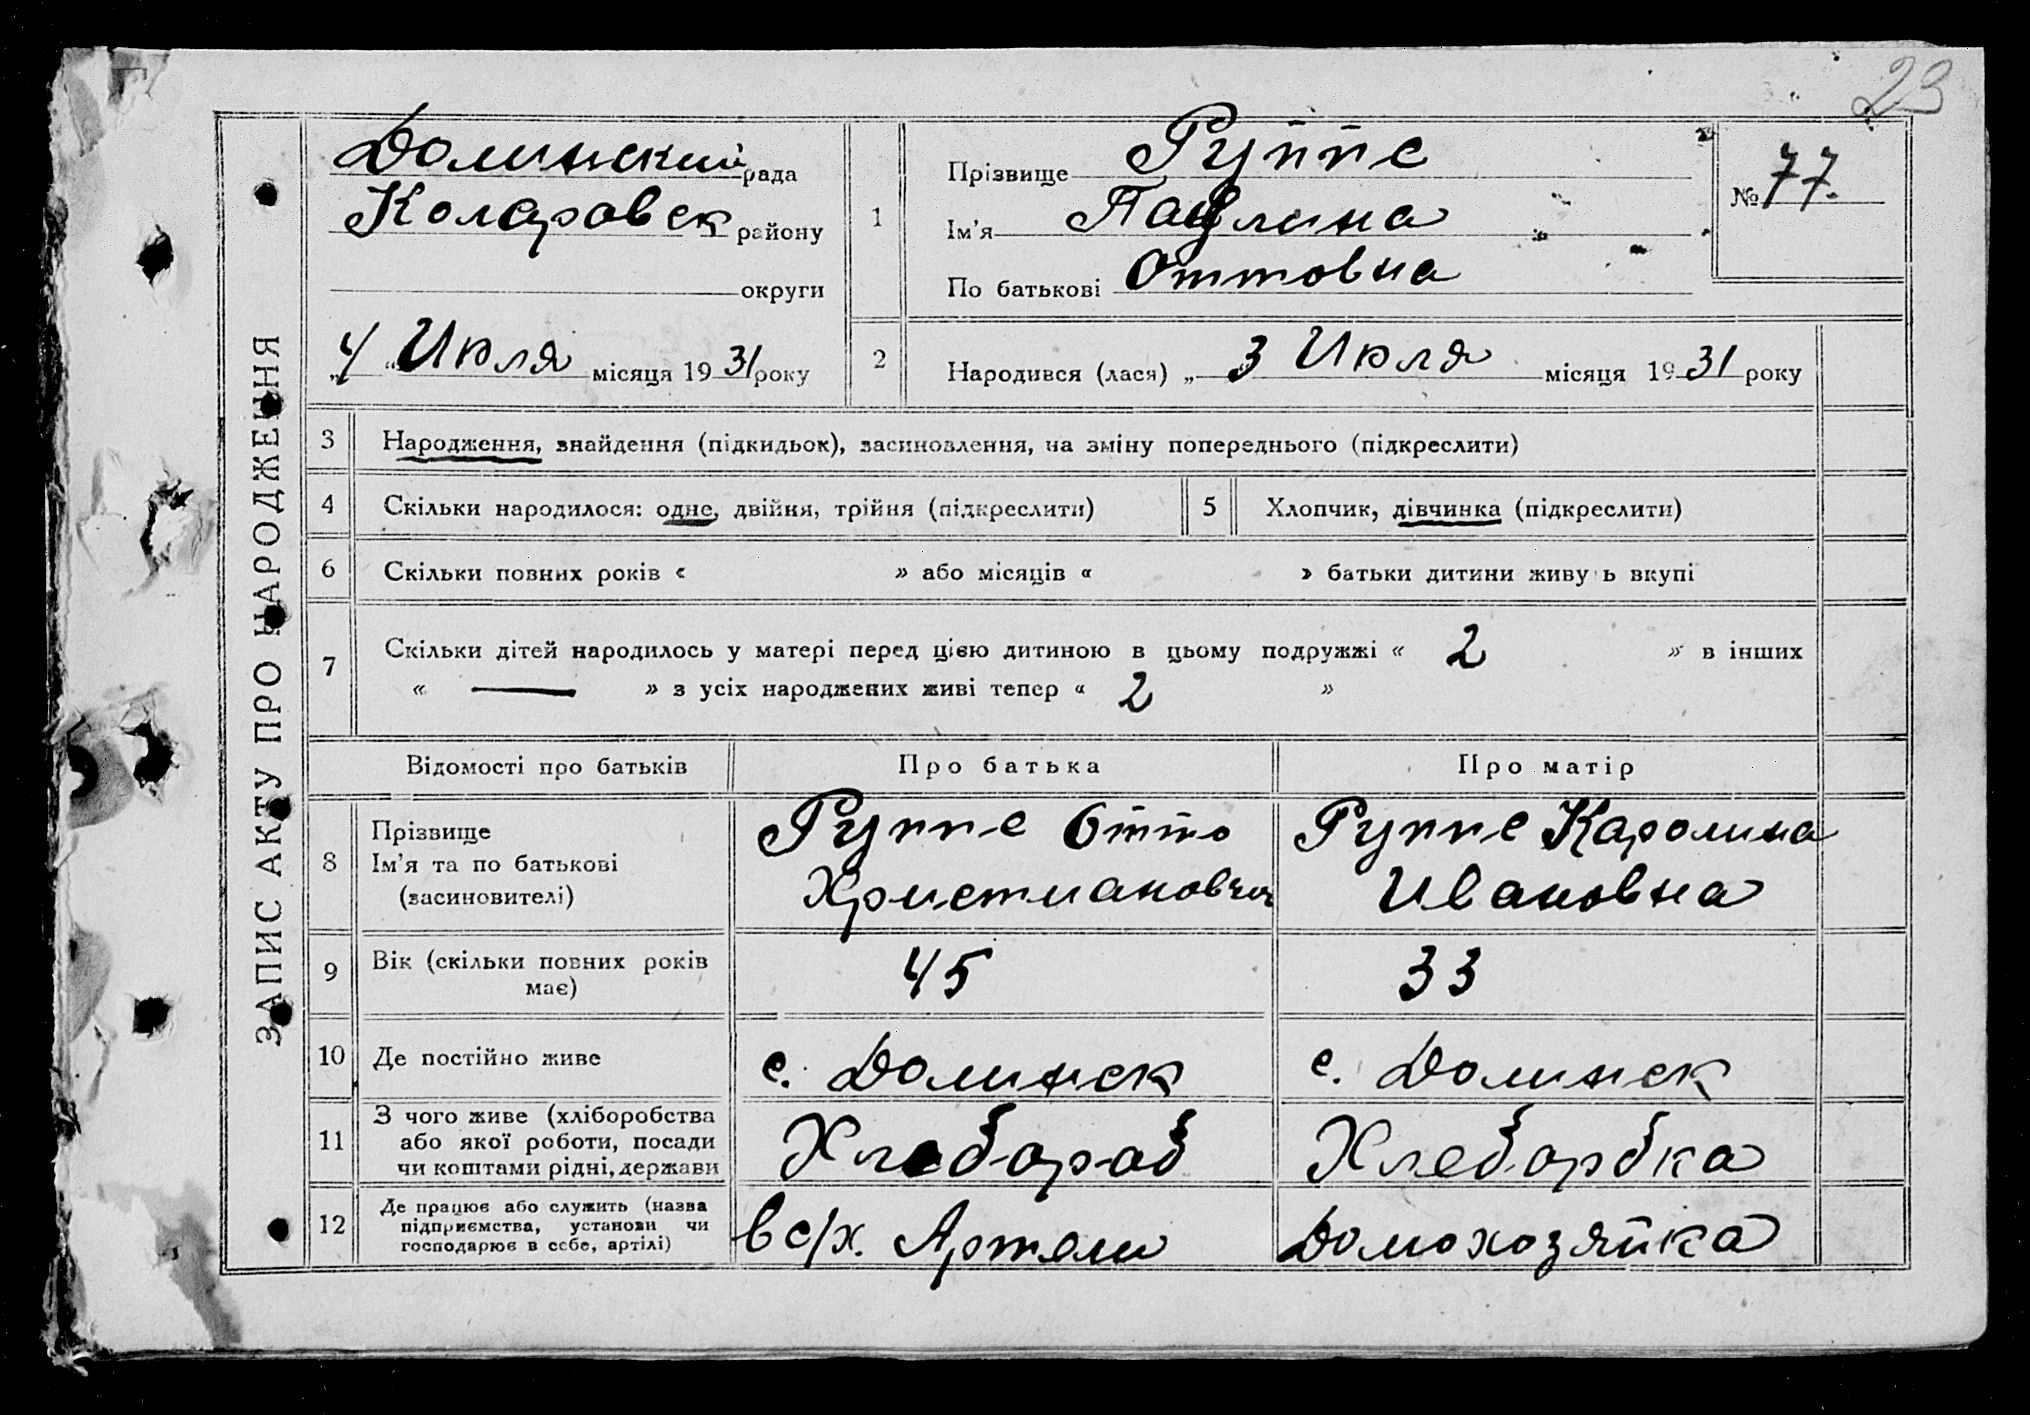 23
ЗАПИС АКТУ ПРО НАРОДЖЕННЯ
Долинский рада
Коларовск району
округи
„4“ Июля місяця 1931 року
1
Прізвище Руппе
Ім'я Паулина
По батькові Оттовна
№ 77.
2
Народився (лася) „ 3 Июля місяця 1931 року
3 Народження, знайдення (підкидьок), засиновлення, на зміну попереднього (підкреслити)
4 Скільки народилося: одне, двійня, трійня (підкреслити)
5 Хлопчик, дівчинка (підкреслити)
6 Скільки повних років « » або місяців « » батьки дитини живуть вкупі
7 Скільки дітей народилось у матері перед цією дитиною в цьому подружжі « 2 » в інших
« — » з усіх народжених живі тепер « 2 »
Відомості про батьків Про батька Про матір
8 Прізвище
Ім'я та по батькові
(засиновителі)
Руппе Отто
Христианович
Руппе Каролина
Ивановна
9 Вік (скільки повних років
має)
45
33
10 Де постійно живе
с. Долинск
с. Долинск
11 З чого живе (хліборобства
або якої роботи, посади
чи коштами рідні, держави
Хлебороб
Хлеборбка
12 Де працює або служить (назва
підприємства, установи чи
господарює в себе, артілі)
в с/х. Артели
Домохозяйка